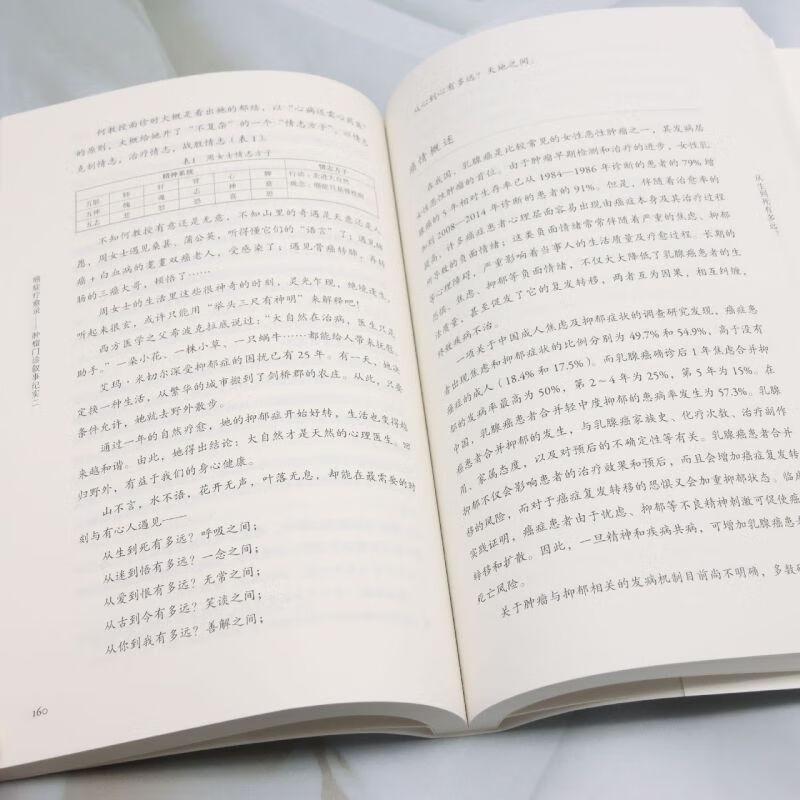 何教授面诊时大概是看出她的郁结，以“心病还需心药医”
的原则，大概给她开了“不复杂”的一个“情志方子”，以情志
克制情志，治疗情志，战胜情志（表1）。
表1 周女士情志方子
精神系统 情志方子
五脏 肺 肝 肾 心 脾 行动：走进大自然
五神 魄 魂 志 神 意
五志 悲 怒 恐 喜 思
不知何教授有意还是无意，不知山里的奇遇是天意还是人
愿，周女士遇见桑葚、蒲公英，听得懂它们的“语言”了；遇见
癌+白血病的耄耋双癌老人，受感染了；遇见胃癌转肺、再转
肠的三癌大哥，顿悟了……
周女士的生活里这些很神奇的时刻，灵光乍现，绝境逢生，
听起来很玄，或许只能用“举头三尺有神明”来解释吧！
西方医学之父希波克拉底说过：“大自然在治病，医生只是
助手。”一朵小花、一株小草、一只蜗牛……都能给人带来抚慰。
艾玛·米切尔深受抑郁症的困扰已有25年。有一天，她决
定换一种生活，从繁华的城市搬到了剑桥郡的农庄。从此，只要
条件允许，她就去野外散步。
通过一年的自然疗愈，她的抑郁症开始好转，生活也变得越
来越和谐。由此，她得出结论：大自然才是天然的心理医生。回
归野外，有益于我们的身心健康。
山不言，水不语，花开无声，叶落无息，却能在最需要的时
刻与有心人遇见——
从生到死有多远？呼吸之间；
从迷到悟有多远？一念之间；
从爱到恨有多远？无常之间；
从古到今有多远？笑谈之间；
从你到我有多远？善解之间；
160
癌症疗愈录——肿瘤门诊叙事纪实二
从心到心有多远？天地之间。
癌情概述
在我国，乳腺癌是比较常见的女性恶性肿瘤之一，其发病居
女性恶性肿瘤的首位。由于肿瘤早期检测和治疗的进步，女性乳
腺癌的5年相对生存率已从1984—1986年诊断的患者的79%增
加到2008—2014年诊断的患者的91%。但是，伴随着治愈率的
提高，许多癌症患者心理层面容易出现由癌症本身及其治疗过程
所导致的负面情绪，这类负面情绪常常伴随着严重的焦虑、抑郁
等心理障碍，严重影响着当事人的生活质量及疗愈过程。长期的
恐惧、焦虑、抑郁等负面情绪，不仅大大降低了乳腺癌患者的生
活质量，甚至促发了它的复发转移，两者互为因果，相互纠缠，
终致疾病不治。
一项关于中国成人焦虑及抑郁症状的调查研究发现，癌症患
者出现焦虑和抑郁症状的比例分别为49.7%和54.9%，高于没有
癌症的成人（18.4%和17.5%）。而乳腺癌确诊后1年焦虑合并抑
郁的发病率最高为50%，第2～4年为25%，第5年为15%。在
中国，乳腺癌患者合并轻中度抑郁的患病率发生为57.3%。乳腺
癌患者合并抑郁的发生，与乳腺癌家族史、化疗次数、治疗副作
用、家属态度，以及对预后的不确定性等有关。乳腺癌患者合并
抑郁不仅会影响患者的治疗效果和预后，而且会增加癌症复发转
移的风险，而对于癌症复发转移的恐惧又会加重抑郁状态。临床
实践证明，癌症患者由于忧虑、抑郁等不良精神刺激可促使癌
转移和扩散。因此，一旦精神和疾病共病，可增加乳腺癌患
死亡风险。
关于肿瘤与抑郁相关的发病机制目前尚不明确，多数
从生到死有多远？